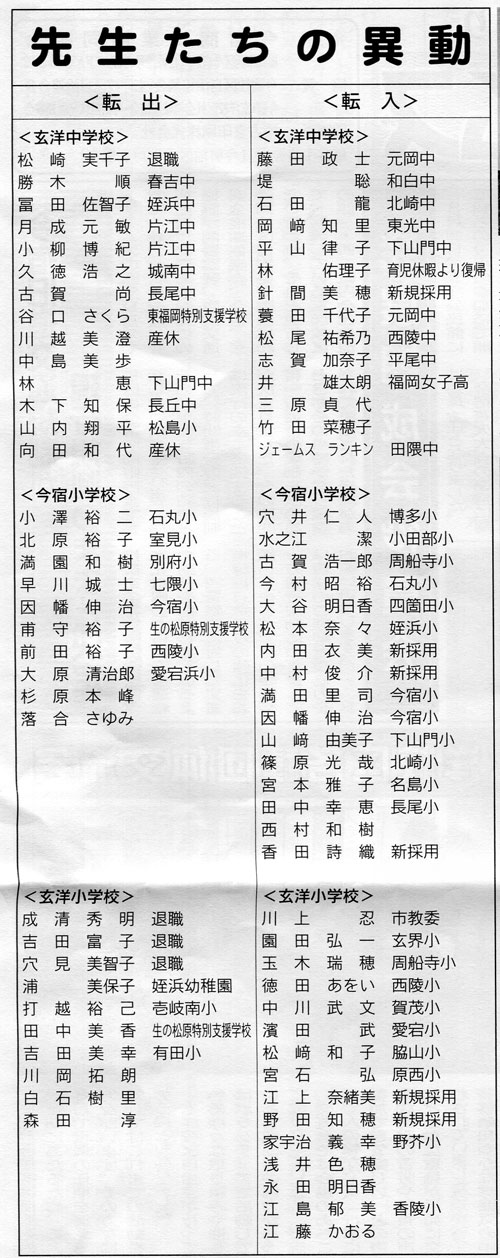 先生たちの異動
＜転　出＞
＜玄洋中学校＞
松﨑　実千子　退職
勝木　順　春吉中
冨田　佐智子　姪浜中
月成元敏　片江中
小柳博紀　片江中
久徳浩之　城南中
古賀　尚　長尾中
谷口　さくら　東福岡特別支援学校
川越美澄　産休
中島美歩
林　恵　下山門中
木下知保　長丘中
山内翔平　松島小
向田和代　産休
＜今宿小学校＞
小澤裕二　石丸小
北原裕子　室見小
満園和樹　別府小
早川城士　七隈小
因幡伸治　今宿小
甫守裕子　生の松原特別支援学校
前田裕子　西陵小
大原　清治郎　愛宕浜小
杉原本峰
落合　さゆみ
＜玄洋小学校＞
成清秀明　退職
吉田富子　退職
穴見　美智子　退職
浦　美保子　姪浜幼稚園
打越裕己　壱岐南小
田中美香　生の松原特別支援学校
吉田美幸　有田小
川岡拓朗
白石樹里
森田　淳
＜転　入＞
＜玄洋中学校＞
藤田政士　元岡中
堤　聡　和白中
石田　龍　北崎中
岡﨑知里　東光中
平山律子　下山門中
林　佑理子　育児休暇より復帰
針間美穂　新規採用
蓑田　千代子　元岡中
松尾　祐希乃　西陵中
志賀　加奈子　平尾中
井　雄太朗　福岡女子高
三原貞代
竹田　菜穂子
ジェームス ランキン　田隈中
＜今宿小学校＞
穴井仁人　博多小
水之江　潔　小田部小
古賀　浩一郎　周船寺小
今村昭裕　石丸小
大谷　明日香　四箇田小
松本奈々　姪浜小
内田衣美　新採用
中村俊介　新採用
満田里司　今宿小
因幡伸治　今宿小
山﨑　由美子　下山門小
篠原光哉　北崎小
宮本雅子　名島小
田中幸恵　長尾小
西村和樹
香田詩織　新採用
＜玄洋小学校＞
川上　忍　市教委
園田弘一　玄界小
玉木瑞穂　周船寺小
徳田　あをい　西陵小
中川武文　賀茂小
濱田　武　愛宕小
松﨑和子　脇山小
宮石　弘　原西小
江上　奈緒美　新規採用
野田知穂　新規採用
家宇治　義幸　野芥小
浅井色穂
永田　明日香
江島郁美　香陵小
江藤　かおる